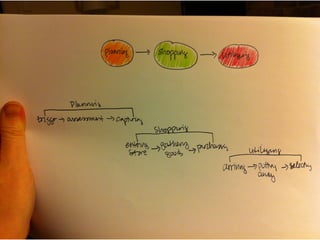 Planning → Shopping → Utilizing
Planning
trigger → assessment → capturing
Shopping
entering store → gathering goods → purchasing
Utilizing
arriving → putting away → selecting